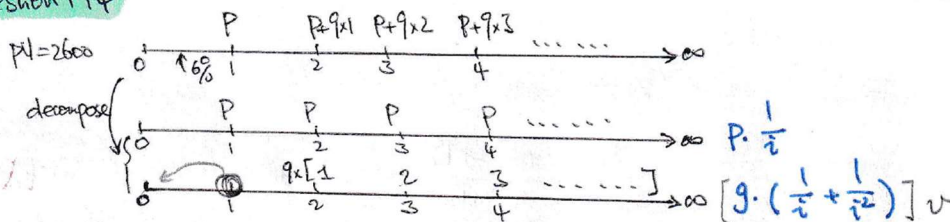 P P+9×1 P+9×2 P+9×3 ......
PV=2600 0 ↑6% 1 2 3 4 ∞
decompose P P P P ......
0 1 2 3 4 ∞ P · 1/i
9×[1 2 3 ......]
0 1 2 3 4 ∞ [9·(1/i + 1/i²)] v